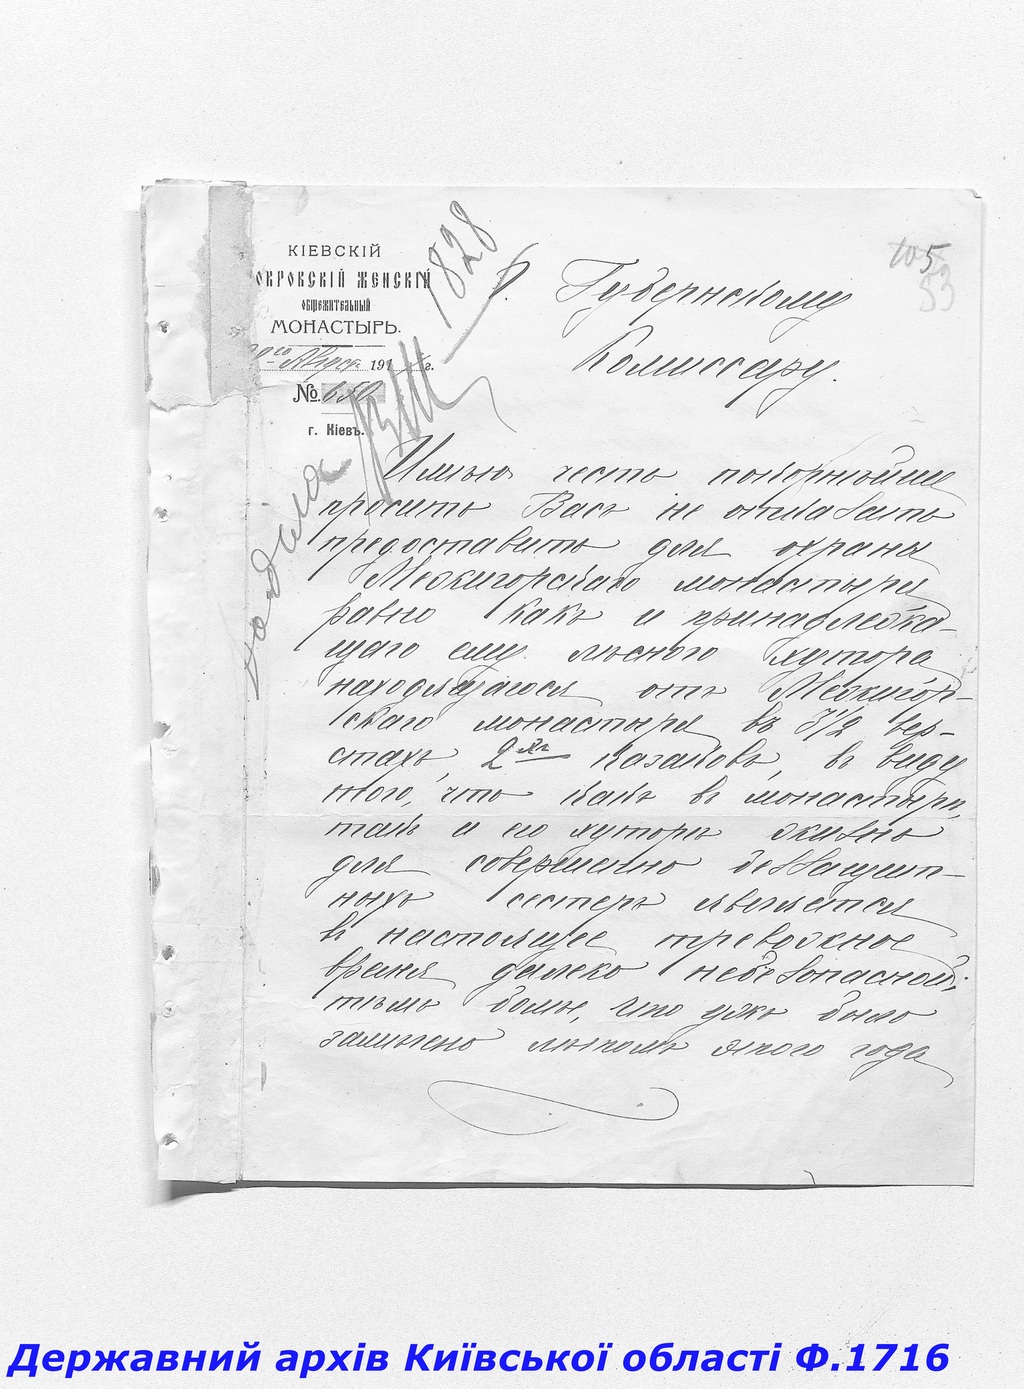 КІЕВСКІЙ
ПОКРОВСКІЙ ЖЕНСКІЙ
ОБЩЕЖИТЕЛЬНЫЙ
МОНАСТЫРЬ.
Августа 191 г.
№ 650
г. Кіевъ.
1828
105
53
Г. Губернскому
Комиссару.
Имѣю честь покорнѣйше
просить Васъ не отказать
предоставить для охраны
Межигорскаго монастыря
равно какъ и принадлежа-
щаго ему лѣсного хутора
находящагося отъ Межигор-
скаго монастыря въ 3½ вер-
стахъ, 2хъ казаковъ, въ виду
того, что какъ въ монастырѣ,
такъ и на хуторѣ жизнь
для совершенно беззащит-
ныхъ сестеръ является
въ настоящее тревожное
время далеко небезопасной;
тѣмъ болѣе, что уже было
лѣтомъ этого года
Державний архів Київської області Ф.1716